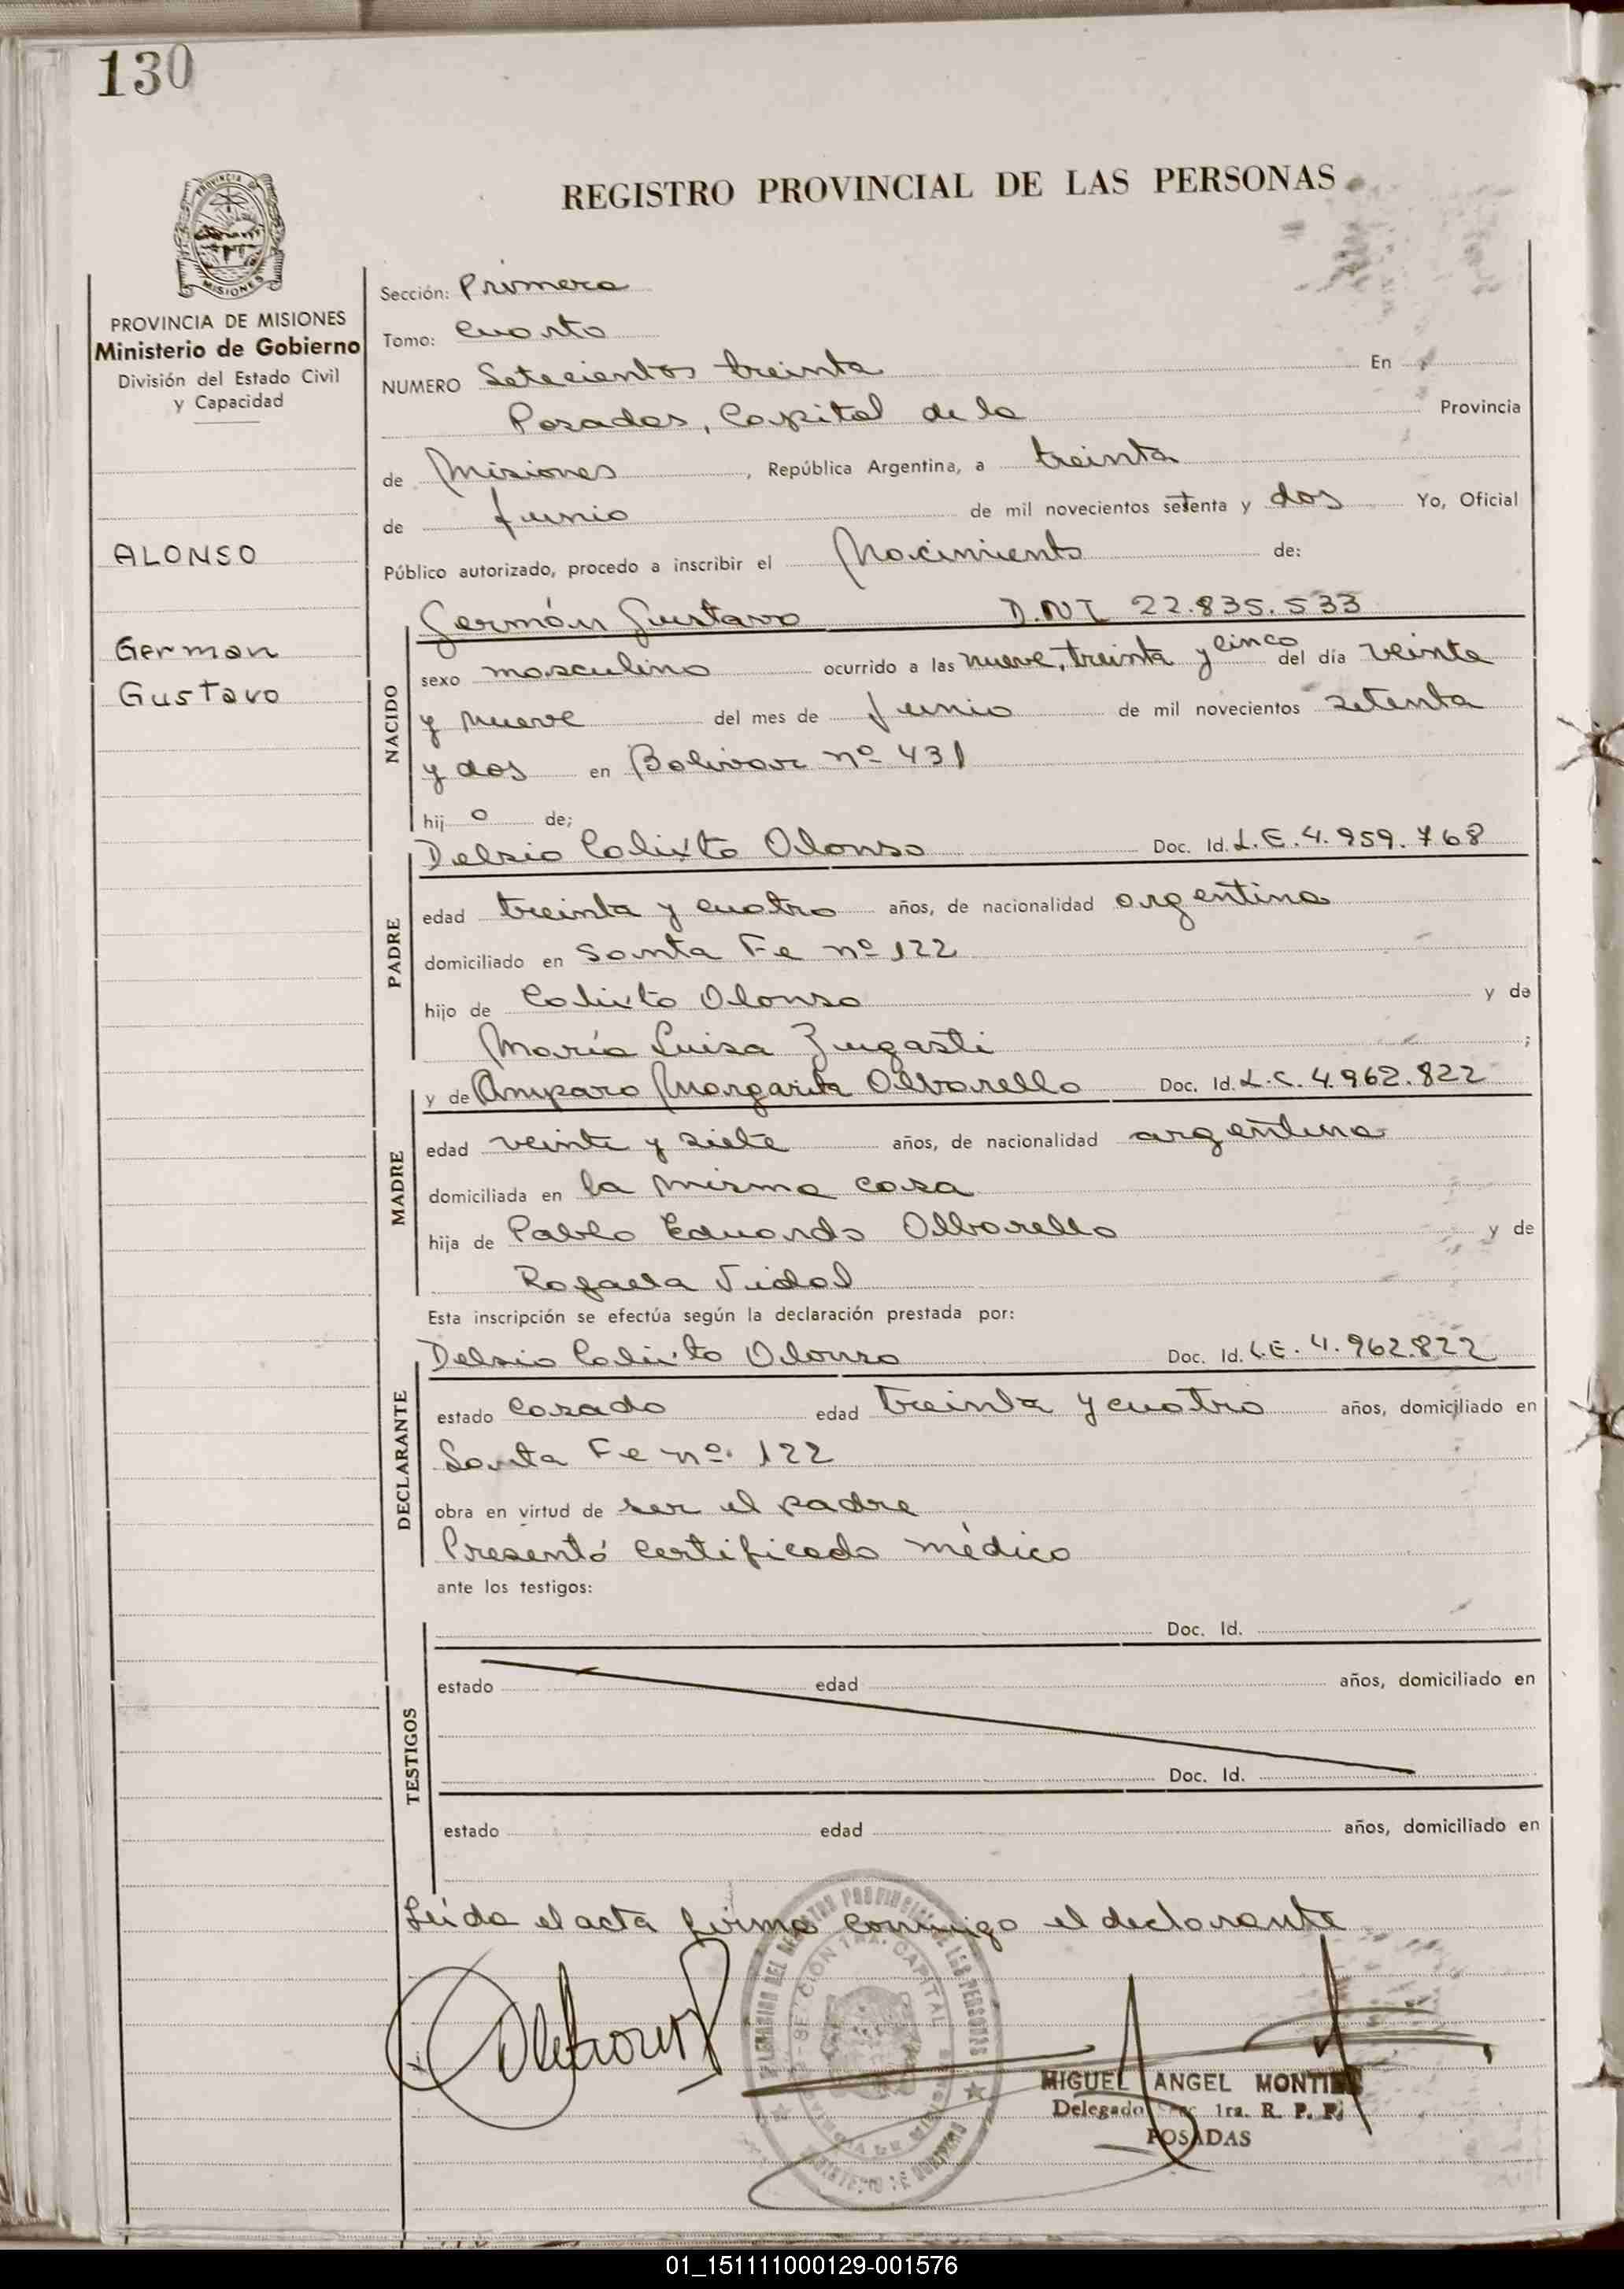 130
REGISTRO PROVINCIAL DE LAS PERSONAS
PROVINCIA DE
MISIONES
PROVINCIA DE MISIONES
Ministerio de Gobierno
División del Estado Civil
y Capacidad
ALONSO
German
Gustavo
Sección: Primera
Tomo: Cuarto
NUMERO Setecientos treinta En
Posadas, Capital de la Provincia
de Misiones, República Argentina, a treinta
de Junio de mil novecientos setenta y dos Yo, Oficial
Público autorizado, procedo a inscribir el Nacimiento de:
NACIDO
Germán Gustavo D.N.I 22.835.533
sexo masculino ocurrido a las nueve, treinta y cinco del día veinte
y nueve del mes de Junio de mil novecientos setenta
y dos en Bolivar nº 431
hij o de;
PADRE
Delsio Calixto Alonso Doc. Id. L.E. 4.959.768
edad treinta y cuatro años, de nacionalidad argentina
domiciliado en Santa Fe nº 122
hijo de Calixto Alonso y de
María Luisa Zugasti ;
MADRE
y de Amparo Margarita Albarello Doc. Id. L.C. 4.962.822
edad veinte y siete años, de nacionalidad argentina
domiciliada en la misma casa
hija de Pablo Eduardo Albarello y de
Rafaela Vidal
Esta inscripción se efectúa según la declaración prestada por:
DECLARANTE
Delsio Calixto Alonso Doc. Id. L.E. 4.962.822
estado casado edad treinta y cuatro años, domiciliado en
Santa Fe nº. 122
obra en virtud de ser el padre
Presentó certificado médico
ante los testigos:
TESTIGOS
Doc. Id.
estado edad años, domiciliado en
Doc. Id.
estado edad años, domiciliado en
Leída el acta firma conmigo el declarante
MIGUEL ANGEL
Delegado 1ra. R. P. P.
POSADAS
01_151111000129-001576